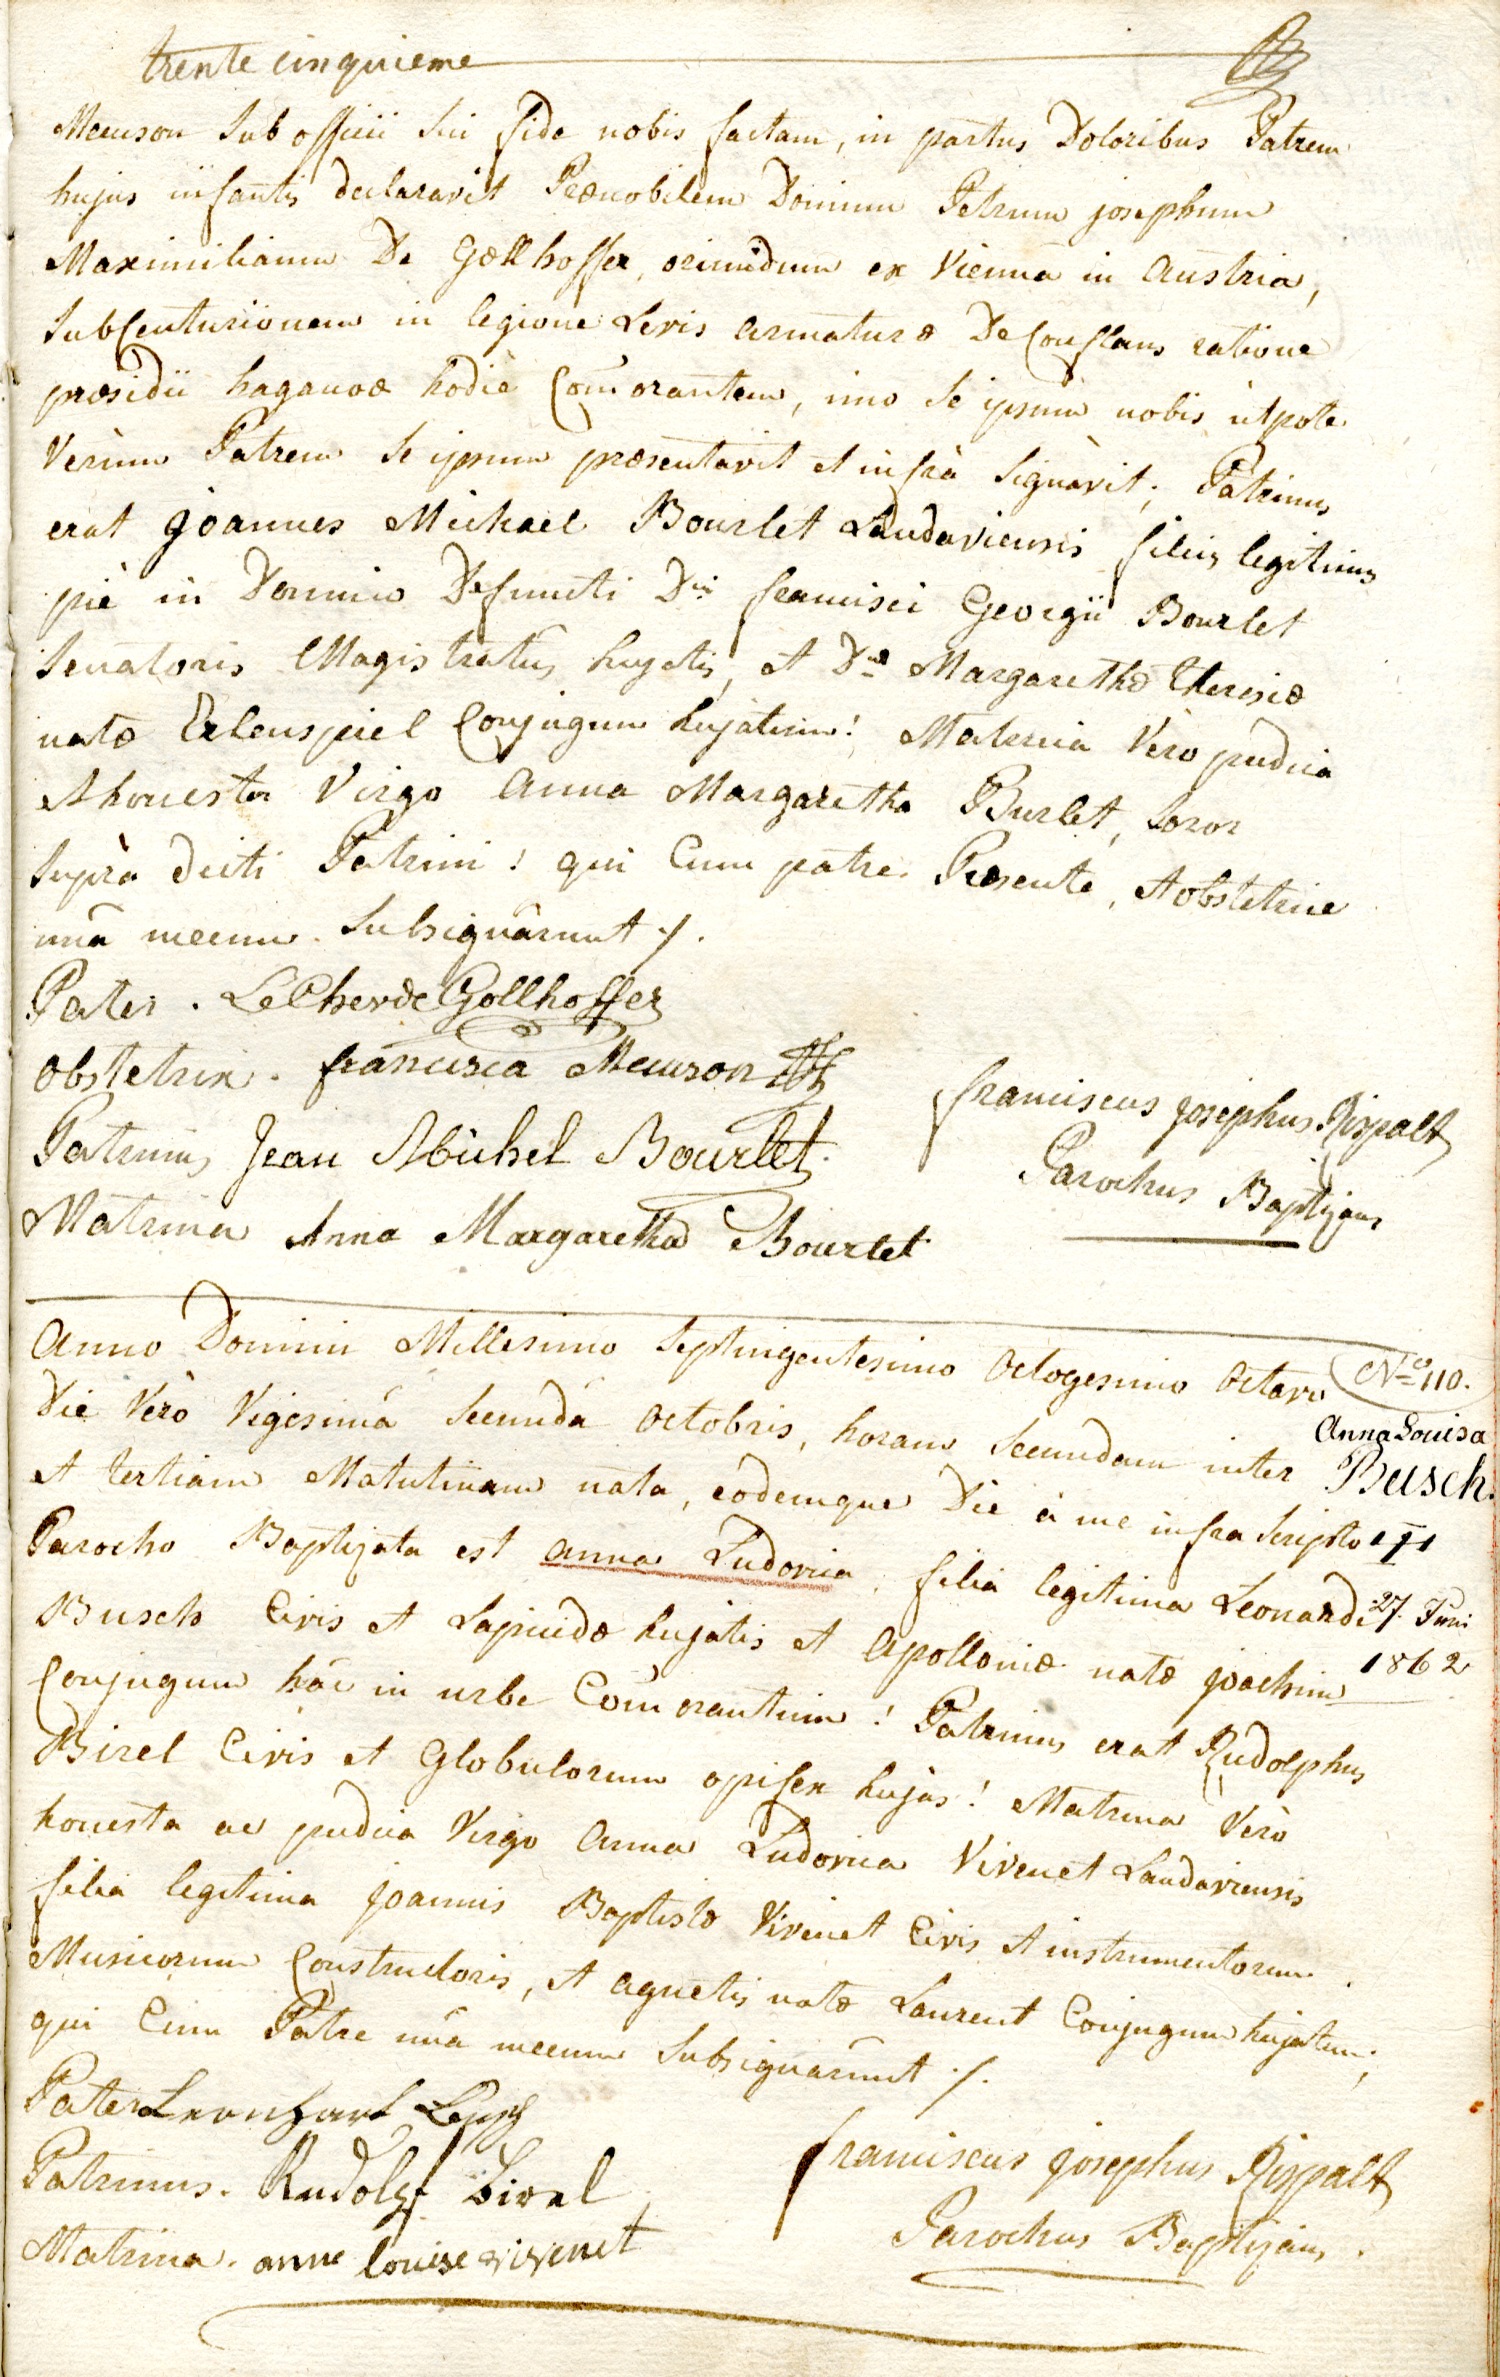 trente cinquieme
Meuson sub officii sui fide nobis factam, in partus Doloribus Patrem
hujus infantis declaravit Prænobilem Dominum Petrum josephum
Maximilianum De Gœllhoffer, oriundum ex Vienna in Austria,
subCenturionem in legione Levis armaturæ De Conflans ratione
præsidii haganoæ hodiè Com̄orantem, imo se ipsum nobis utpote
Verùm Patrem se ipsum præsentavit et infrà signavit; Patrinus
erat Joannes Michael Bourlet Landaviensis filius legitimus
piè in Domino Defuncti Dni francisci Georgii Bourlet
senatoris Magistratus hujatis, et Dnæ Margarethæ theresiæ
natæ Erlenspiel Conjugum hujatum! Matrina Vero pudica
et honesta Virgo Anna Margaretha Burlet, soror
suprà dicti Patrini! qui Cum patre Præsente, et obstetrice
unâ mecum subsignârunt ./.
Pater . Le Cher de Gollhoffer
obstetrix . francisca Meuson
Patrinus Jean Michel Bourlet
Matrina Anna Margaretha Bourlet
franciscus josephus Rispalt
Parochus Baptizans
Anno Domini Millesimo septingentesimo octogesimo octavo
No 110.
Die Verò Vigesimâ secundâ octobris, horam secundam inter
Anna Louisa
Busch.
et tertiam Matutinam nata, eodemque Die à me infra scripto
Parocho Baptizata est anna Ludovica, filia legitima Leonardi
27. Juni
1862
Busch Civis et Lapicidæ hujatis et Apolloniæ natæ joachim
Conjugum hâc in urbe Com̄orantium! Patrinus erat Rudolphus
Birel Civis et Globulorum opifex hujas! Matrina Verò
honesta ac pudica Virgo Anna Ludovica Vivenet Landaviensis
filia legitima joannis Baptistæ Vivenet Civis et instrumentorum
Musicorum Constructoris, et agnetis natæ Laurent Conjugum hujatum;
qui Cum Patre unâ mecum subsignârunt ./.
Pater Leonhart
Patrinus. Rudolf Birel
Matrina. anne louise vivenet
franciscus josephus Rispalt
Parochus Baptizans.